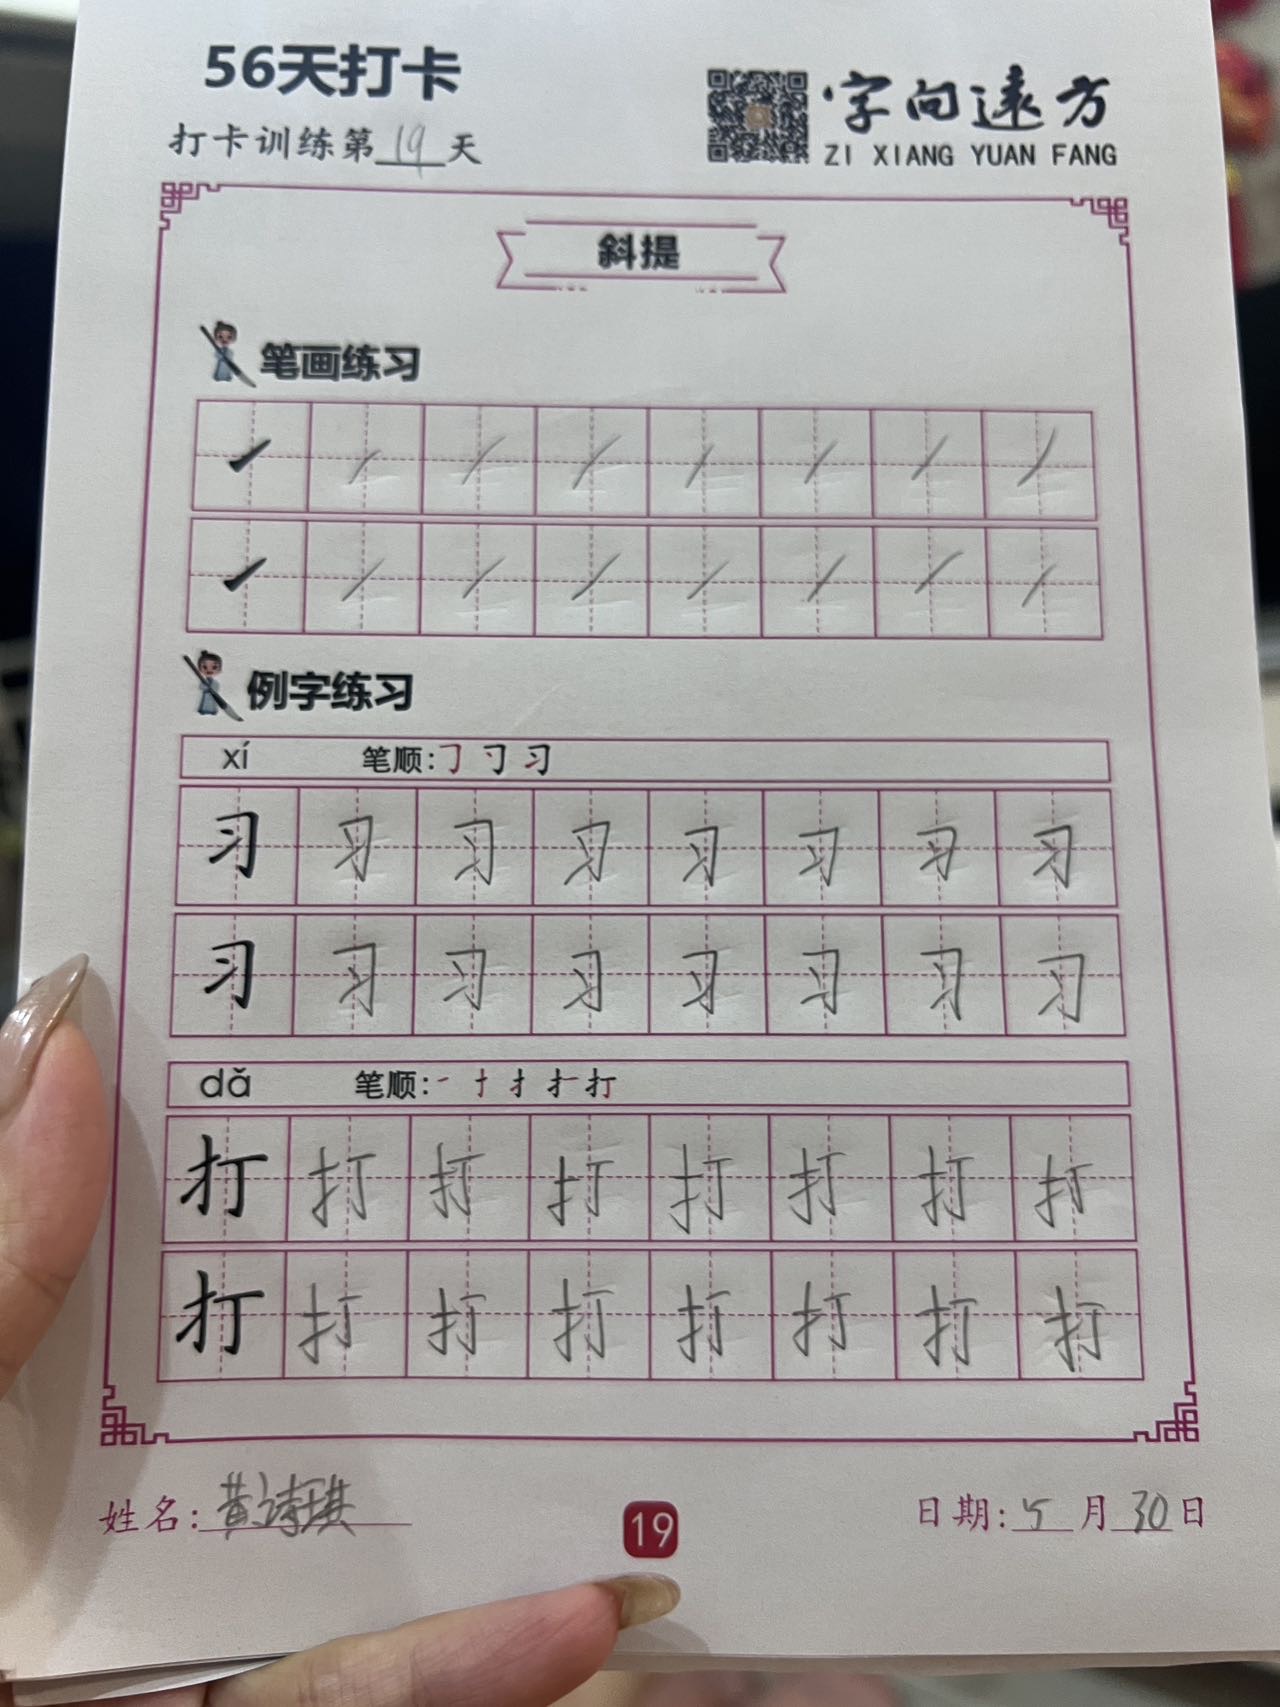 56天打卡
打卡训练第19天
字向远方
ZI XIANG YUAN FANG
斜提
笔画练习
例字练习
xí 笔顺:㇆ 刁 习
习 习 习 习 习 习 习 习
习 习 习 习 习 习 习 习
dǎ 笔顺:一 十 扌 扩 打
打 打 打 打 打 打 打 打
打 打 打 打 打 打 打 打
姓名:黄诗琪
19
日期:5月30日